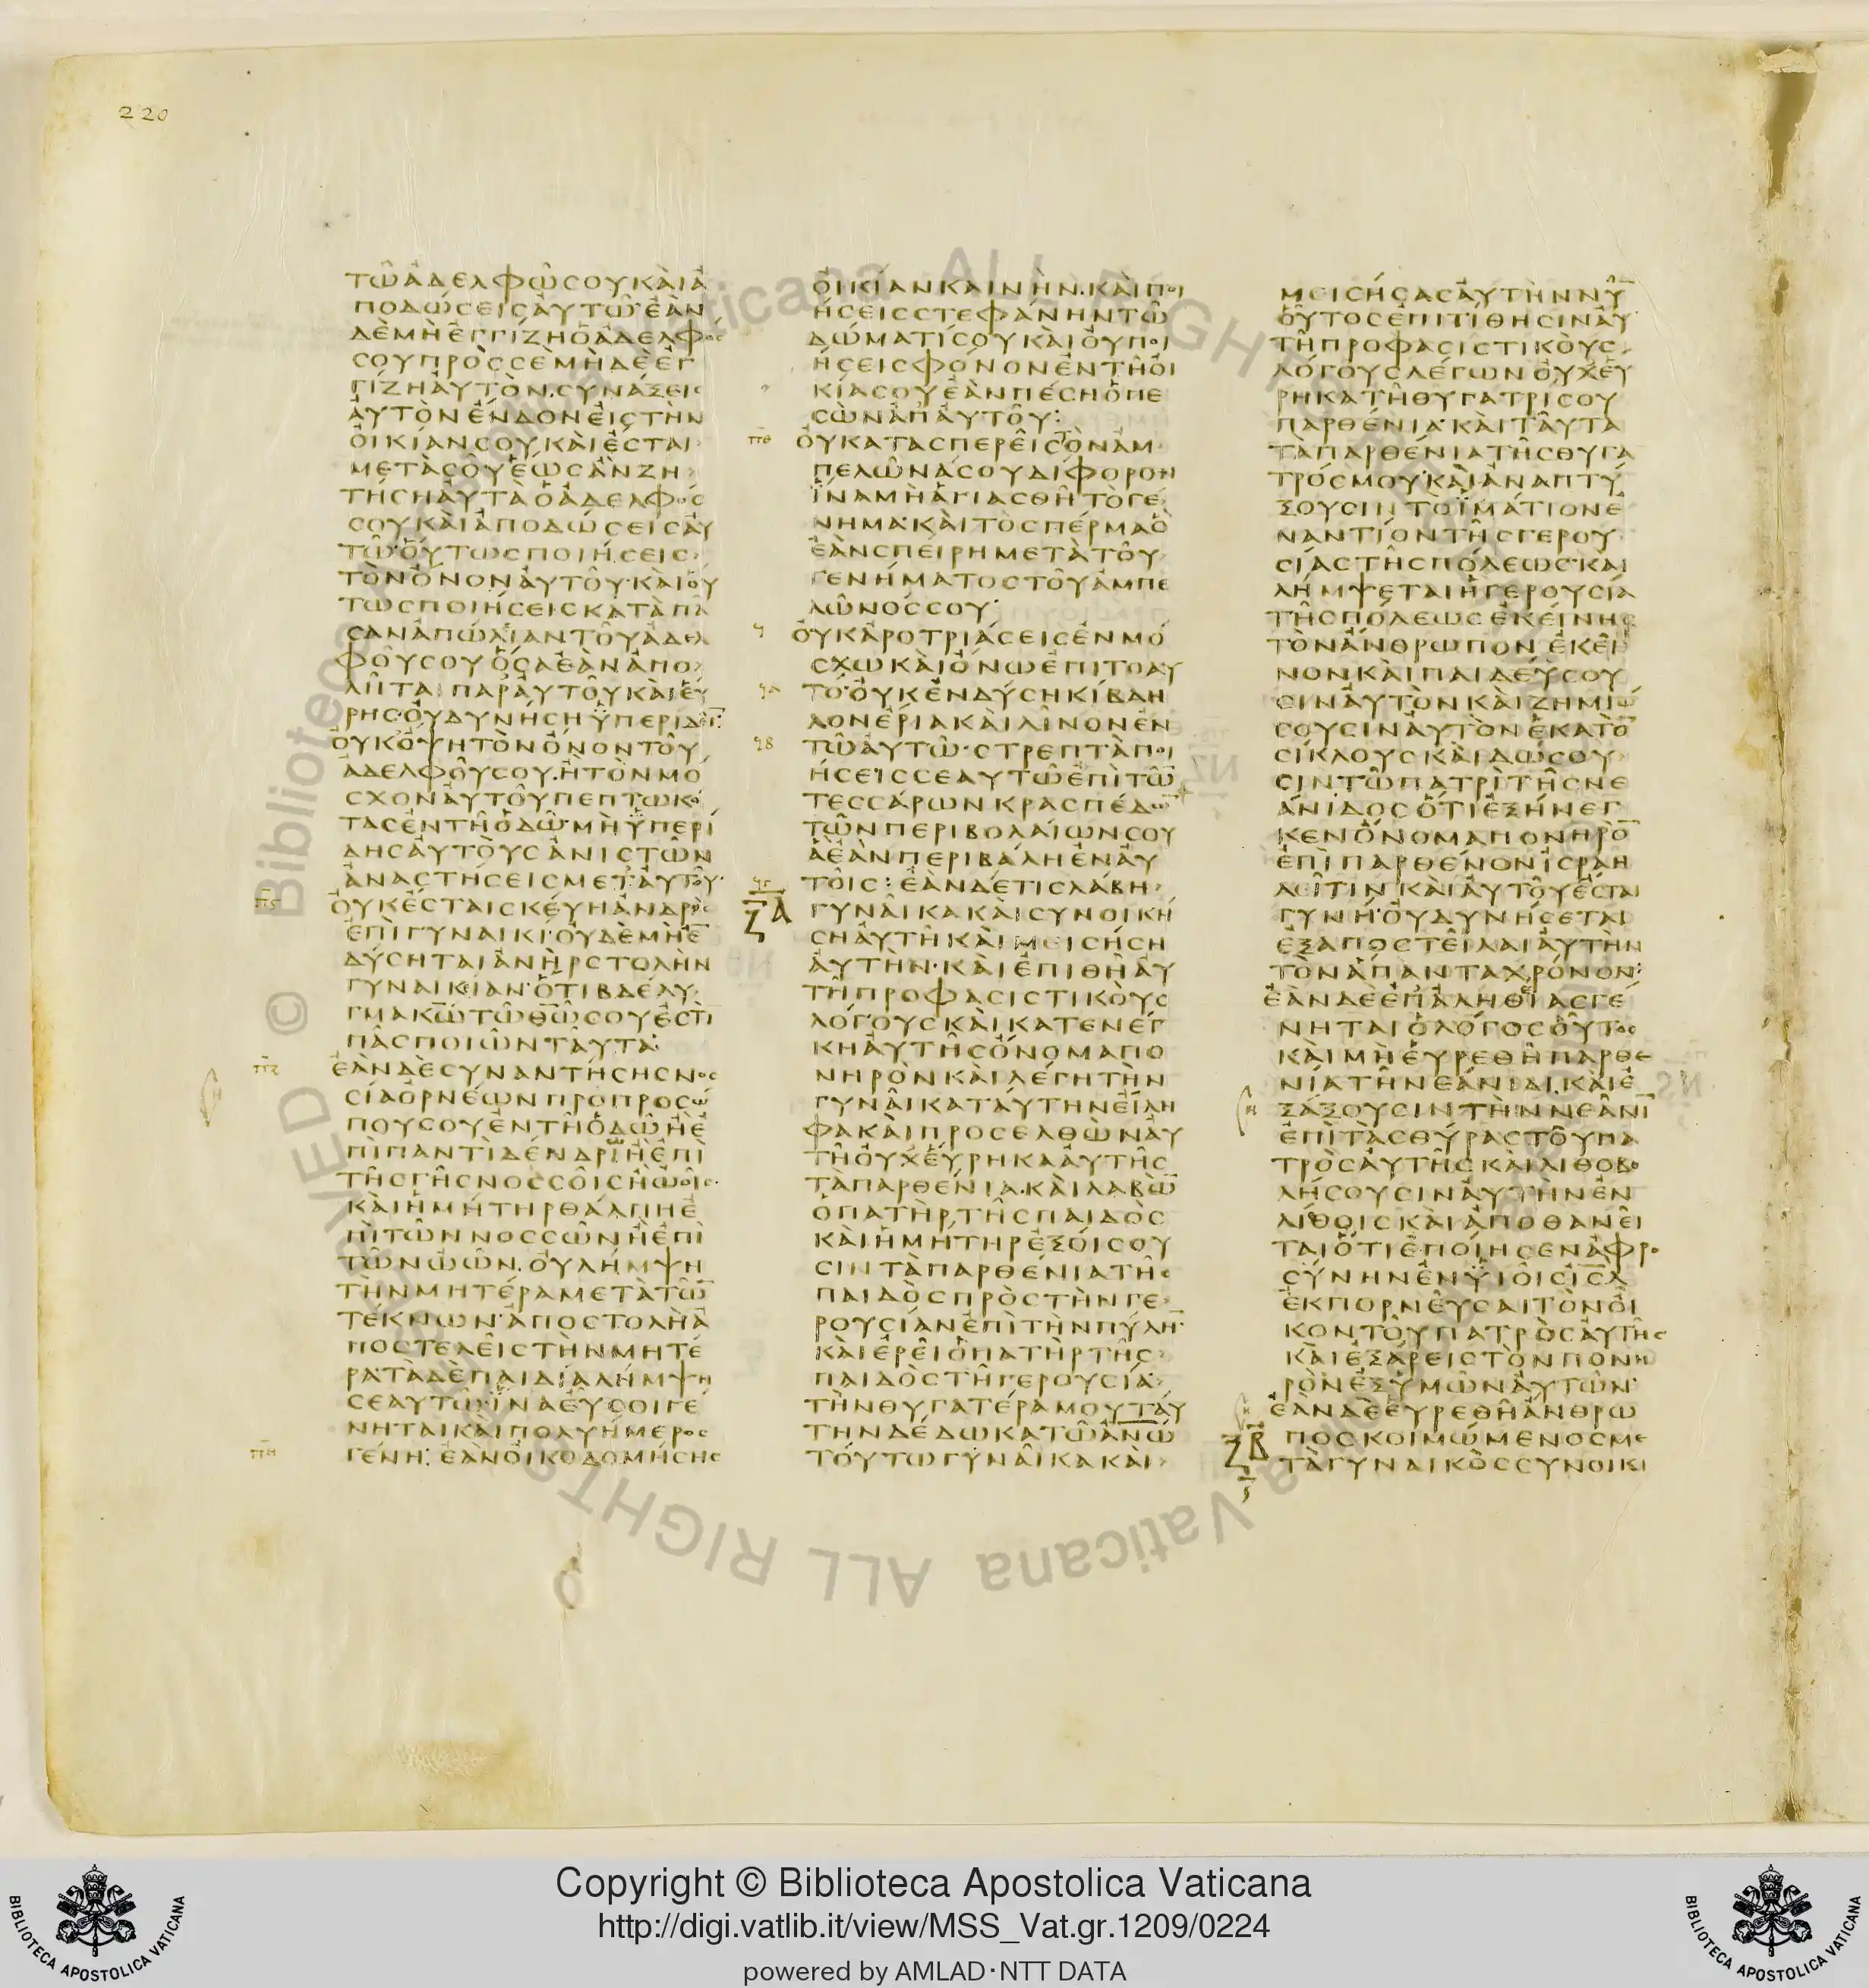 220
ΤΩ ΑΔΕΛΦΩ ΣΟΥ ΚΑΙ Α
ΠΟΔΩΣΕΙΣ ΑΥΤΩ ΕΑΝ
ΔΕ ΜΗ ΕΓΓΙΖΗ Ο ΑΔΕΛΦΟΣ
ΣΟΥ ΠΡΟΣ ΣΕ ΜΗΔΕ ΕΠ
ΓΙΖΗ ΑΥΤΟΝ ΣΥΝΑΞΕΙΣ
ΑΥΤΟΝ ΕΝΔΟΝ ΕΙΣ ΤΗΝ
ΟΙΚΙΑΝ ΣΟΥ ΚΑΙ ΕΣΤΑΙ
ΜΕΤΑ ΣΟΥ ΕΩΣ ΑΝ ΖΗ
ΤΗΣΗ ΑΥΤΑ Ο ΑΔΕΛΦΟΣ
ΣΟΥ ΚΑΙ ΑΠΟΔΩΣΕΙΣ ΑΥ
ΤΩ ΟΥΤΩΣ ΠΟΙΗΣΕΙΣ
ΤΟΝ ΟΝΟΝ ΑΥΤΟΥ ΚΑΙ ΟΥ
ΤΩΣ ΠΟΙΗΣΕΙΣ ΚΑΤΑ ΠΑ
ΣΑΝ ΑΠΩΛΙΑΝ ΤΟΥ ΑΔΕΛ
ΦΟΥ ΣΟΥ ΟΣΑ ΕΑΝ ΑΠΟ
ΛΗΤΑΙ ΠΑΡ ΑΥΤΟΥ ΚΑΙ ΕΥ
ΡΗΣ ΟΥ ΔΥΝΗΣΗ ΫΠΕΡΙΔΕΙ̅
ΟΥΚ ΟΨΗ ΤΟΝ ΟΝΟΝ ΤΟΥ
ΑΔΕΛΦΟΥ ΣΟΥ Η ΤΟΝ ΜΟ
ΣΧΟΝ ΑΥΤΟΥ ΠΕΠΤΩΚΟ
ΤΑΣ ΕΝ ΤΗ ΟΔΩ ΜΗ ΫΠΕΡΙ
ΔΗΣ ΑΥΤΟΥΣ ΑΝΙΣΤΩΝ
ΑΝΑΣΤΗΣΕΙΣ ΜΕΤ ΑΥΤΟΥ
Π̅Ϛ̅ ΟΥΚ ΕΣΤΑΙ ΣΚΕΥΗ ΑΝΔΡΟΣ
ΕΠΙ ΓΥΝΑΙΚΙ ΟΥΔΕ ΜΗ Ε̅
ΔΥΣΗΤΑΙ ΑΝΗΡ ΣΤΟΛΗΝ
ΓΥΝΑΙΚΙΑΝ ΟΤΙ ΒΔΕΛΥ
ΓΜΑ ΚΩ̅ ΤΩ ΘΩ̅ ΣΟΥ ΕΣΤΙ̅
ΠΑΣ ΠΟΙΩΝ ΤΑΥΤΑ
Π̅Ζ̅ ΕΑΝ ΔΕ ΣΥΝΑΝΤΗΣΗΣ ΝΟΣ
ΣΙΑ ΟΡΝΕΩΝ ΠΡΟ ΠΡΟΣΩ
ΠΟΥ ΣΟΥ ΕΝ ΤΗ ΟΔΩ Η Ε
ΠΙ ΠΑΝΤΙ ΔΕΝΔΡΙ Η ΕΠΙ
ΤΗΣ ΓΗΣ ΝΟΣΣΟΙΣ Η ΩΟΙΣ
ΚΑΙ Η ΜΗΤΗΡ ΘΑΛΠΗ Ε
ΠΙ ΤΩΝ ΝΟΣΣΩΝ Η ΕΠΙ
ΤΩΝ ΩΩΝ ΟΥ ΛΗΜΨΗ
ΤΗΝ ΜΗΤΕΡΑ ΜΕΤΑ ΤΩ̅
ΤΕΚΝΩΝ ΑΠΟΣΤΟΛΗ Α
ΠΟΣΤΕΛΕΙΣ ΤΗΝ ΜΗΤΕ
ΡΑ ΤΑ ΔΕ ΠΑΙΔΙΑ ΛΗΜΨΗ
ΣΕΑΥΤΩ ΪΝΑ ΕΥ ΣΟΙ ΓΕ
ΝΗΤΑΙ ΚΑΙ ΠΟΛΥΗΜΕΡΟΣ
Π̅Η̅ ΓΕΝΗ: ΕΑΝ ΟΙΚΟΔΟΜΗΣΗΣ
ΟΙΚΙΑΝ ΚΑΙΝΗΝ ΚΑΙ ΠΟΙ
ΗΣΕΙΣ ΣΤΕΦΑΝΗΝ ΤΩ
ΔΩΜΑΤΙ ΣΟΥ ΚΑΙ ΟΥ ΠΟΙ
ΗΣΕΙΣ ΦΟΝΟΝ ΕΝ ΤΗ ΟΙ
ΚΙΑ ΣΟΥ ΕΑΝ ΠΕΣΗ Ο ΠΕ
ΣΩΝ ΑΠ ΑΥΤΟΥ:
Π̅Θ̅ ΟΥ ΚΑΤΑΣΠΕΡΕΙΣ ΤΟΝ ΑΜ
ΠΕΛΩΝΑ ΣΟΥ ΔΙΦΟΡΟΝ
ΪΝΑ ΜΗ ΑΓΙΑΣΘΗ ΤΟ ΓΕ
ΝΗΜΑ ΚΑΙ ΤΟ ΣΠΕΡΜΑ Ο
ΕΑΝ ΣΠΕΙΡΗ ΜΕΤΑ ΤΟΥ
ΓΕΝΗΜΑΤΟΣ ΤΟΥ ΑΜΠΕ
ΛΩΝΟΣ ΣΟΥ
Ϟ ΟΥΚ ΑΡΟΤΡΙΑΣΕΙΣ ΕΝ ΜΟ
ΣΧΩ ΚΑΙ ΟΝΩ ΕΠΙ ΤΟ ΑΥ
ϞΑ ΤΟ ΟΥΚ ΕΝΔΥΣΗ ΚΙΒΔΗ
ΛΟΝ ΕΡΙΑ ΚΑΙ ΛΙΝΟΝ ΕΝ
ϞΒ ΤΩ ΑΥΤΩ ΣΤΡΕΠΤΑ ΠΟΙ
ΗΣΕΙΣ ΣΕΑΥΤΩ ΕΠΙ ΤΩ̅
ΤΕΣΣΑΡΩΝ ΚΡΑΣΠΕΔΩ̅
ΤΩΝ ΠΕΡΙΒΟΛΑΙΩΝ ΣΟΥ
Α ΕΑΝ ΠΕΡΙΒΑΛΗ ΕΝ ΑΥ
ϞΓ ΤΟΙΣ: ΕΑΝ ΔΕ ΤΙΣ ΛΑΒΗ
ΞΑ ΓΥΝΑΙΚΑ ΚΑΙ ΣΥΝΟΙΚΗ
ΣΗ ΑΥΤΗ ΚΑΙ ΜΕΙΣΗΣΗ
ΑΥΤΗΝ ΚΑΙ ΕΠΙΘΗ ΑΥ
ΤΗ ΠΡΟΦΑΣΙΣΤΙΚΟΥΣ
ΛΟΓΟΥΣ ΚΑΙ ΚΑΤΕΝΕΓ
ΚΗ ΑΥΤΗΣ ΟΝΟΜΑ ΠΟ
ΝΗΡΟΝ ΚΑΙ ΛΕΓΗ ΤΗΝ
ΓΥΝΑΙΚΑ ΤΑΥΤΗΝ ΕΙΛΗ
ΦΑ ΚΑΙ ΠΡΟΣΕΛΘΩΝ ΑΥ
ΤΗ ΟΥΧ ΕΥΡΗΚΑ ΑΥΤΗΣ
ΤΑ ΠΑΡΘΕΝΙΑ ΚΑΙ ΛΑΒΩ̅
Ο ΠΑΤΗΡ ΤΗΣ ΠΑΙΔΟΣ
ΚΑΙ Η ΜΗΤΗΡ ΕΞΟΙΣΟΥ
ΣΙΝ ΤΑ ΠΑΡΘΕΝΙΑ ΤΗΣ
ΠΑΙΔΟΣ ΠΡΟΣ ΤΗΝ ΓΕ
ΡΟΥΣΙΑΝ ΕΠΙ ΤΗΝ ΠΥΛΗ̅
ΚΑΙ ΕΡΕΙ Ο ΠΑΤΗΡ ΤΗΣ
ΠΑΙΔΟΣ ΤΗ ΓΕΡΟΥΣΙΑ
ΤΗΝ ΘΥΓΑΤΕΡΑ ΜΟΥ ΤΑΥ
ΤΗΝ ΔΕΔΩΚΑ ΤΩ ΑΝΩ̅
ΤΟΥΤΩ ΓΥΝΑΙΚΑ ΚΑΙ
ΜΕΙΣΗΣΑΣ ΑΥΤΗΝ ΝΥ̅
ΟΥΤΟΣ ΕΠΙΤΙΘΗΣΙΝ ΑΥ
ΤΗ ΠΡΟΦΑΣΙΣΤΙΚΟΥΣ
ΛΟΓΟΥΣ ΛΕΓΩΝ ΟΥΧ ΕΥ
ΡΗΚΑ ΤΗ ΘΥΓΑΤΡΙ ΣΟΥ
ΠΑΡΘΕΝΙΑ ΚΑΙ ΤΑΥΤΑ
ΤΑ ΠΑΡΘΕΝΙΑ ΤΗΣ ΘΥΓΑ
ΤΡΟΣ ΜΟΥ ΚΑΙ ΑΝΑΠΤΥ
ΞΟΥΣΙΝ ΤΟ ΪΜΑΤΙΟΝ Ε
ΝΑΝΤΙΟΝ ΤΗΣ ΓΕΡΟΥ
ΣΙΑΣ ΤΗΣ ΠΟΛΕΩΣ ΚΑΙ
ΛΗΜΨΕΤΑΙ Η ΓΕΡΟΥΣΙΑ
ΤΗΣ ΠΟΛΕΩΣ ΕΚΕΙΝΗΣ
ΤΟΝ ΑΝΘΡΩΠΟΝ ΕΚΕΙ
ΝΟΝ ΚΑΙ ΠΑΙΔΕΥΣΟΥ
ΣΙΝ ΑΥΤΟΝ ΚΑΙ ΖΗΜΙΩ
ΣΟΥΣΙΝ ΑΥΤΟΝ ΕΚΑΤΟ̅
ΣΙΚΛΟΥΣ ΚΑΙ ΔΩΣΟΥ
ΣΙΝ ΤΩ ΠΑΤΡΙ ΤΗΣ ΝΕ
ΑΝΙΔΟΣ ΟΤΙ ΕΞΗΝΕΓ
ΚΕΝ ΟΝΟΜΑ ΠΟΝΗΡΟ̅
ΕΠΙ ΠΑΡΘΕΝΟΝ ΙΣΡΑΗ
ΛΕΙΤΙΝ ΚΑΙ ΑΥΤΟΥ ΕΣΤΑΙ
ΓΥΝΗ ΟΥ ΔΥΝΗΣΕΤΑΙ
ΕΞΑΠΟΣΤΕΙΛΑΙ ΑΥΤΗΝ
ΤΟΝ ΑΠΑΝΤΑ ΧΡΟΝΟΝ:
ΕΑΝ ΔΕ ΕΠ ΑΛΗΘΕΙΑΣ ΓΕ
ΝΗΤΑΙ Ο ΛΟΓΟΣ ΟΥΤΟΣ
ΚΑΙ ΜΗ ΕΥΡΕΘΗ ΠΑΡΘΕ
ΝΙΑ ΤΗ ΝΕΑΝΙΔΙ ΚΑΙ Ε
ΞΑΞΟΥΣΙΝ ΤΗΝ ΝΕΑΝΙ̅
ΕΠΙ ΤΑΣ ΘΥΡΑΣ ΤΟΥ ΠΑ
ΤΡΟΣ ΑΥΤΗΣ ΚΑΙ ΛΙΘΟΒΟ
ΛΗΣΟΥΣΙΝ ΑΥΤΗΝ ΕΝ
ΛΙΘΟΙΣ ΚΑΙ ΑΠΟΘΑΝΕΙ
ΤΑΙ ΟΤΙ ΕΠΟΙΗΣΕΝ ΑΦΡΟ
ΣΥΝΗΝ ΕΝ ΫΙΟΙΣ Ι̅Σ̅Λ̅
ΕΚΠΟΡΝΕΥΣΑΙ ΤΟΝ ΟΙ
ΚΟΝ ΤΟΥ ΠΑΤΡΟΣ ΑΥΤΗΣ
ΚΑΙ ΕΞΑΡΕΙΣ ΤΟΝ ΠΟΝΗ
ΡΟΝ ΕΞ ΥΜΩΝ ΑΥΤΩΝ
ΕΑΝ ΔΕ ΕΥΡΕΘΗ ΑΝΘΡΩ
ΞΒ ΠΟΣ ΚΟΙΜΩΜΕΝΟΣ ΜΕ
ΤΑ ΓΥΝΑΙΚΟΣ ΣΥΝΟΙΚΙ
Copyright © Biblioteca Apostolica Vaticana
http://digi.vatlib.it/view/MSS_Vat.gr.1209/0224
powered by AMLAD·NTT DATA
BIBLIOTECA APOSTOLICA VATICANA
BIBLIOTECA APOSTOLICA VATICANA